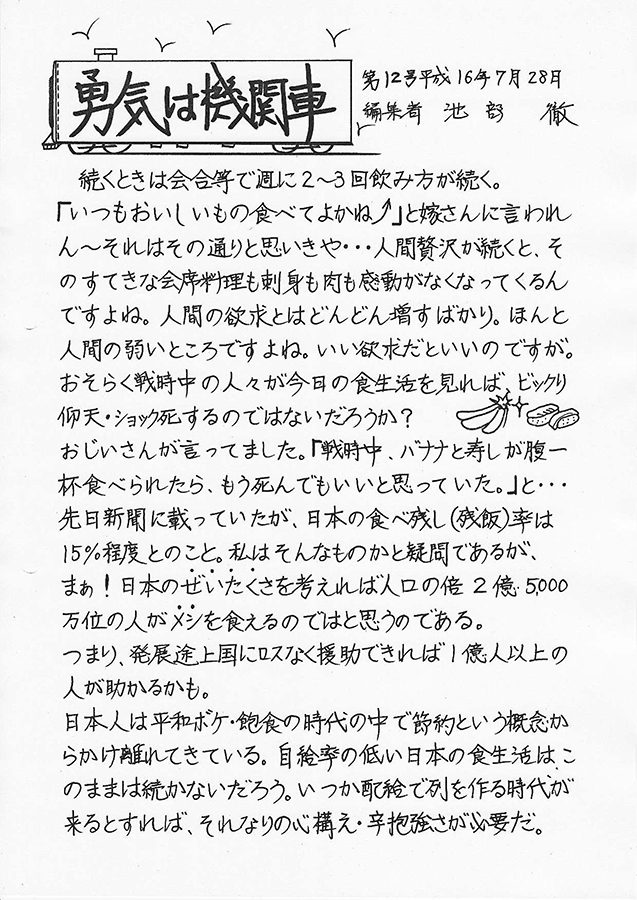 勇気は機関車
第12号平成16年7月28日
編集者 池部 徹
続くときは会合等で週に2〜3回飲み方が続く。
「いつもおいしいもの食べてよかね⤴」と嫁さんに言われ
ん〜それはその通りと思いきや・・・人間贅沢が続くと、そ
のすてきな会席料理も刺身も肉も感動がなくなってくるん
ですよね。人間の欲求とはどんどん増すばかり。ほんと
人間の弱いところですよね。いい欲求だといいのですが。
おそらく戦時中の人々が今日の食生活を見れば、ビックリ
仰天・ショック死するのではないだろうか?
おじいさんが言ってました。「戦時中、バナナと寿しが腹一
杯食べられたら、もう死んでもいいと思っていた。」と・・・
先日新聞に載っていたが、日本の食べ残し(残飯)率は
15%程度とのこと。私はそんなものかと疑問であるが、
まぁ!日本のぜいたくさを考えれば人口の倍 2億5,000
万位の人がメシを食えるのではと思うのである。
つまり、発展途上国にロスなく援助できれば1億人以上の
人が助かるかも。
日本人は平和ボケ・飽食の時代の中で節約という概念か
らかけ離れてきている。自給率の低い日本の食生活はこ
のままは続かないだろう。いつか配給で列を作る時代が
来るとすれば、それなりの心構え・辛抱強さが必要だ。